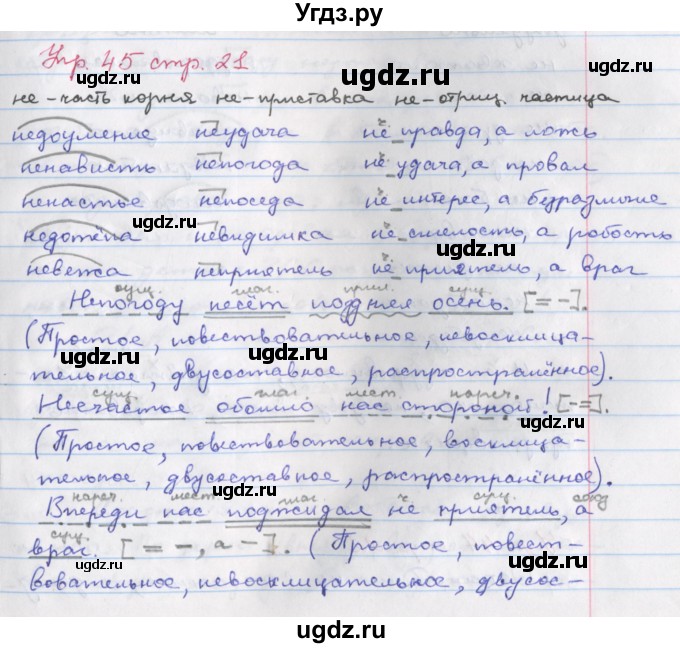 Угдз.ру
Упр. 45 стр. 21
ugdz.ru ugdz.ru ugdz.ru
не-часть корня не-приставка не-отриц. частица
недоумение неудача не правда, а ложь
ненависть непогода не удача, а провал
ненастье непоседа не интерес, а безразличие
недотёпа невидимка не смелость, а робость
невежа неприятель не приятель, а враг
ugdz.ru ugdz.ru
сущ. глаг. прил. сущ.
Непогоду несёт поздняя осень. [= -].
(Простое, повествовательное, невосклица-
ugdz.ru
тельное, двусоставное, распространённое).
сущ. глаг. мест. нареч.
Несчастое обошло нас стороной! [-=].
(Простое, повествовательное, восклица-
тельное, двусоставное, распространённое).
ugdz.ru ugdz.ru
нареч. мест. глаг. ч. сущ. союз
Впереди нас поджидал не приятель, а
сущ.
враг. [= -, а -]. (Простое, повест-
ugdz.ru ugdz.ru
вовательное, невосклицательное, двусос-
ugdz.ru